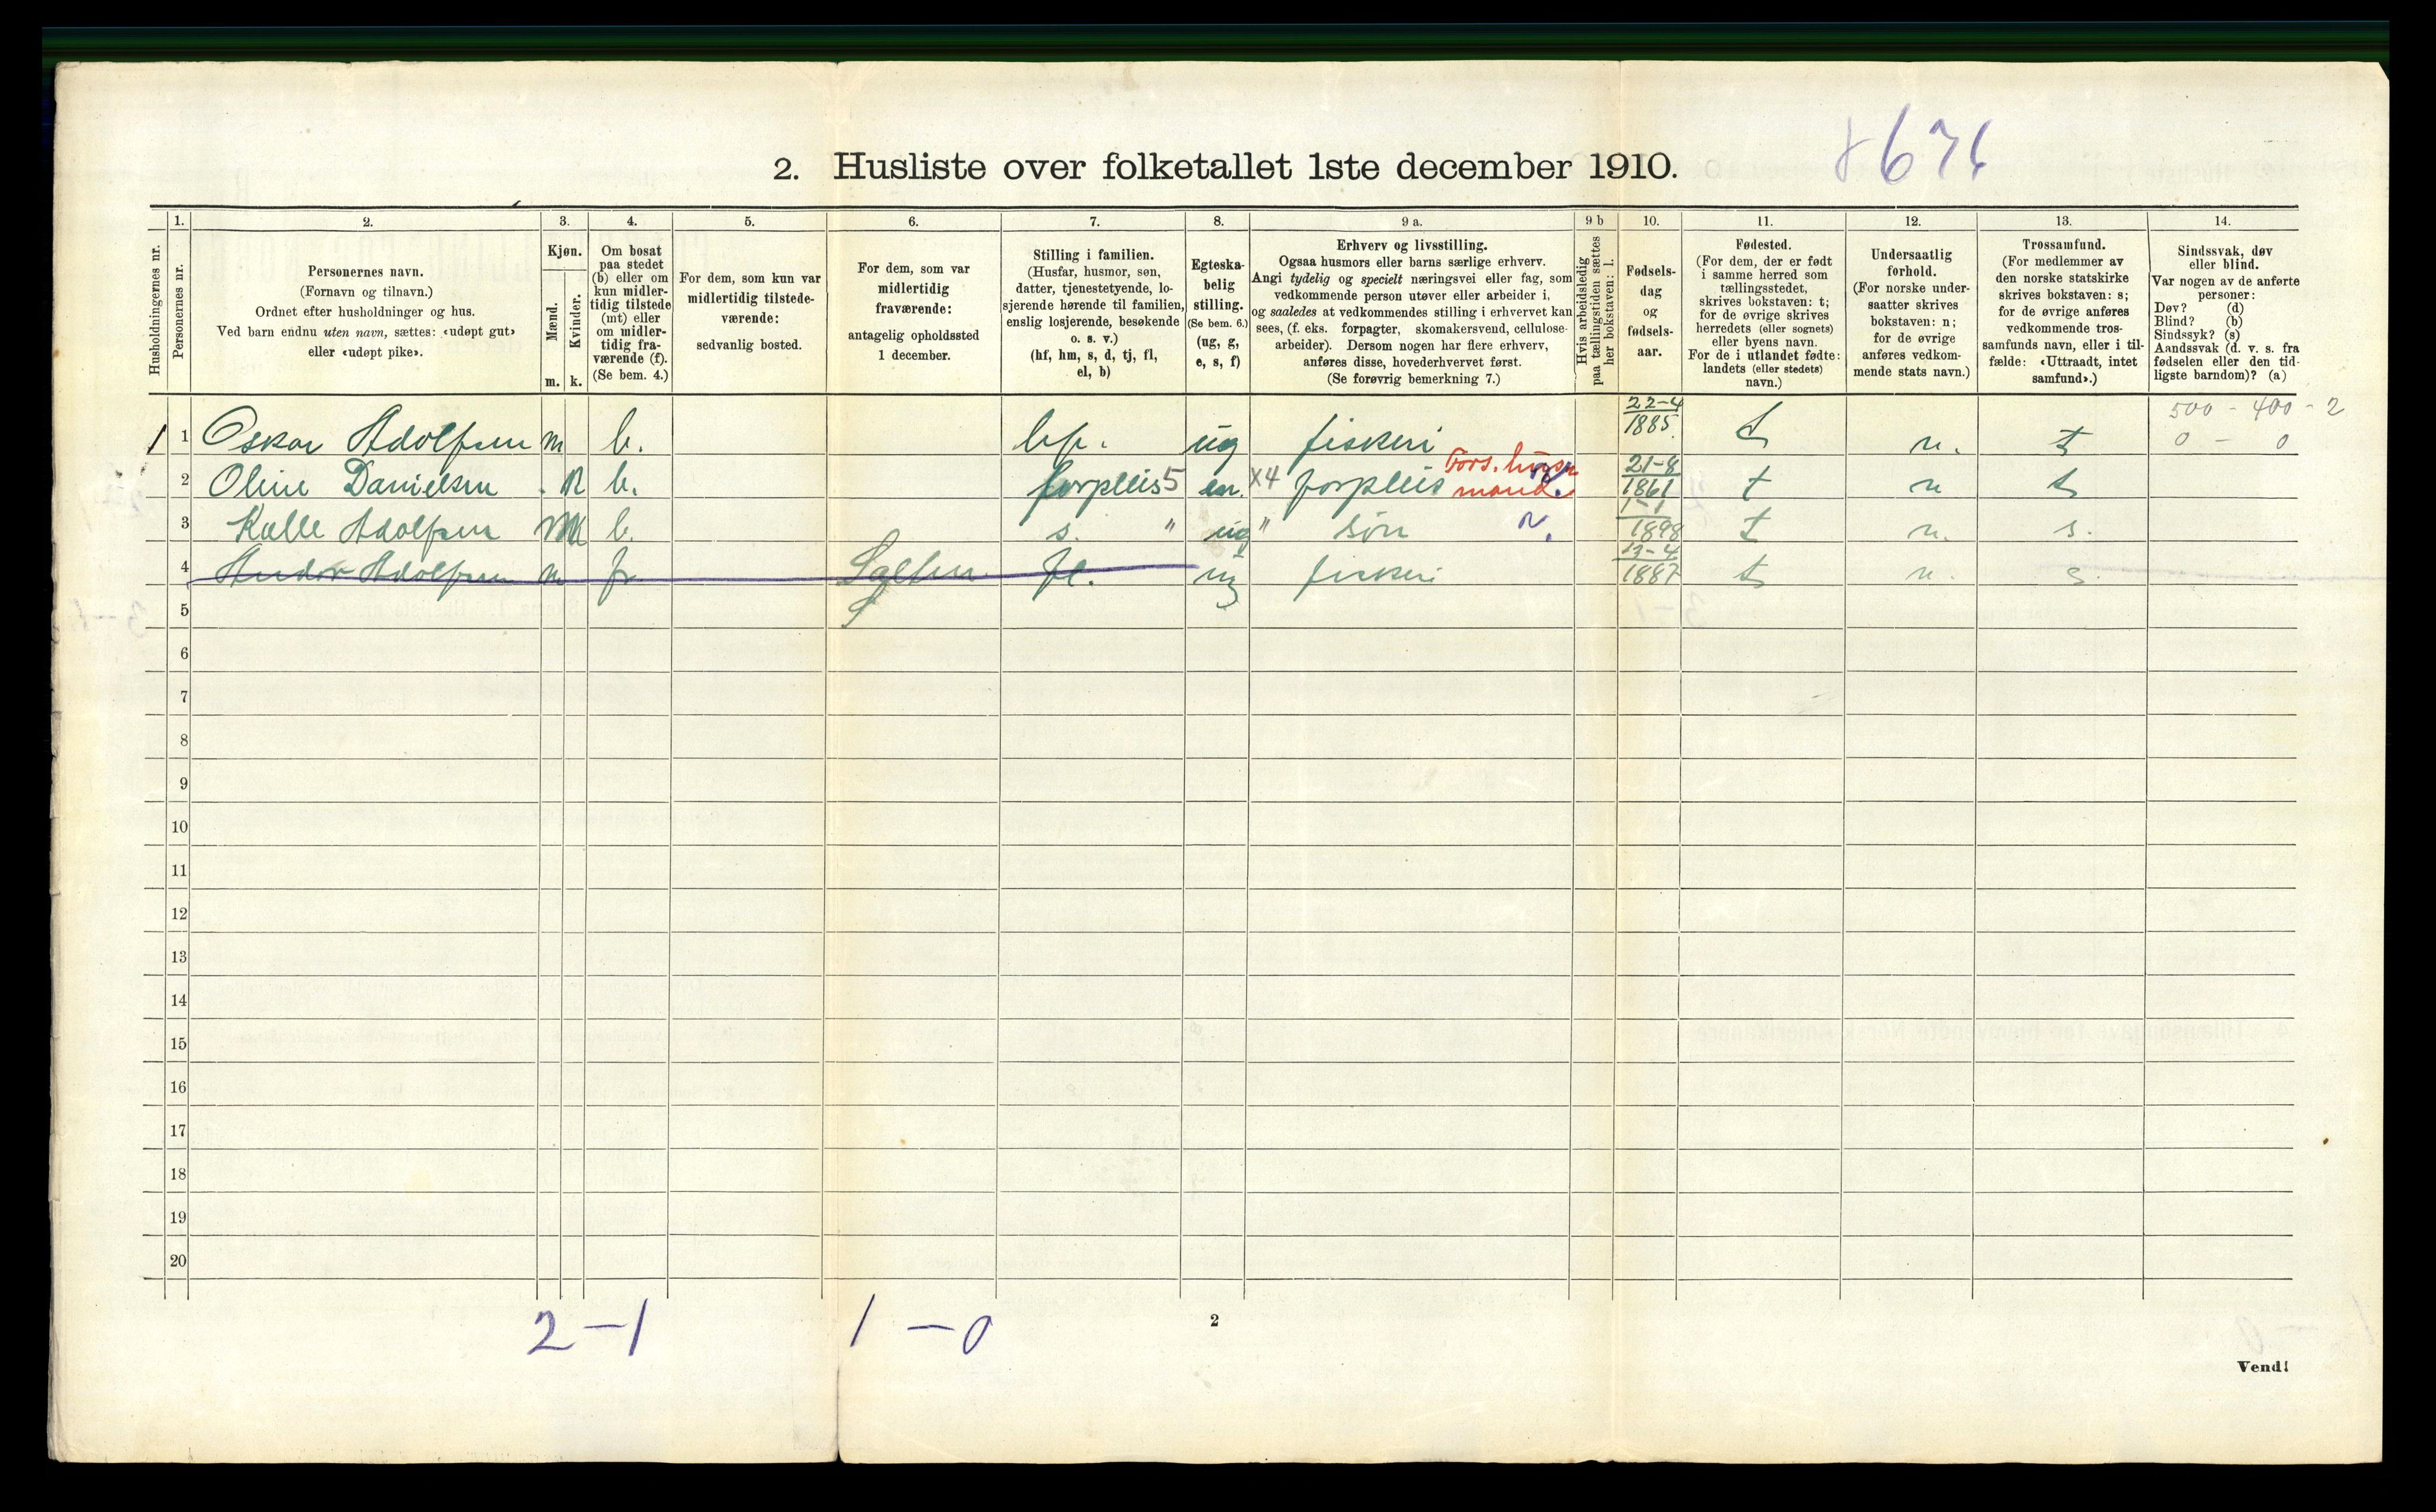 2. Husliste over folketallet 1ste december 1910.
1. 2. 3. 4. 5. 6. 7. 8. 9 a. 9 b 10. 11. 12. 13. 14.
Husholdningernes nr.
Personernes nr.
Personernes navn.
(Fornavn og tilnavn.)
Ordnet efter husholdninger og hus.
Ved barn endnu uten navn, sættes: «udøpt gut»
eller «udøpt pike».
Kjøn.
Mænd.
Kvinder.
m. k.
Om bosat
paa stedet
(b) eller om
kun midler-
tidig tilstede
(mt) eller
om midler-
tidig fra-
værende (f).
(Se bem. 4.)
For dem, som kun var
midlertidig tilstede-
værende:
sedvanlig bosted.
For dem, som var
midlertidig
fraværende:
antagelig opholdssted
1 december.
Stilling i familien.
(Husfar, husmor, søn,
datter, tjenestetyende, lo-
sjerende hørende til familien,
enslig losjerende, besøkende
o. s. v.)
(hf, hm, s, d, tj, fl,
el, b)
Egteska-
belig
stilling.
(Se bem. 6.)
(ug, g,
e, s, f)
Erhverv og livsstilling.
Ogsaa husmors eller barns særlige erhverv.
Angi tydelig og specielt næringsvei eller fag, som
vedkommende person utøver eller arbeider i,
og saaledes at vedkommendes stilling i erhvervet kan
sees, (f. eks. forpagter, skomakersvend, cellulose-
arbeider). Dersom nogen har flere erhverv,
anføres disse, hovederhvervet først.
(Se forøvrig bemerkning 7.)
Hvis arbeidsledig
paa tællingstiden sættes
her bokstaven: l.
Fødsels-
dag
og
fødsels-
aar.
Fødested.
(For dem, der er født
i samme herred som
tællingsstedet,
skrives bokstaven: t;
for de øvrige skrives
herredets (eller sognets)
eller byens navn.
For de i utlandet fødte:
landets (eller stedets)
navn.)
Undersaatlig
forhold.
(For norske under-
saatter skrives
bokstaven: n;
for de øvrige
anføres vedkom-
mende stats navn.)
Trossamfund.
(For medlemmer av
den norske statskirke
skrives bokstaven: s;
for de øvrige anføres
vedkommende tros-
samfunds navn, eller i til-
fælde: «Uttraadt, intet
samfund».)
Sindssvak, døv
eller blind.
Var nogen av de anførte
personer:
Døv? (d)
Blind? (b)
Sindssyk? (s)
Aandssvak (d. v. s. fra
fødselen eller den tid-
ligste barndom)? (a)
500 - 400 - 2
0 - 0
1 1 Oskar Adolfsen m b. ug fiskeri 22-4 1885 t n. t
2 Oline Danielsen k b. forpleis 5 en. X4 forpleis Fors. 21-8 1861 t n s
3 Kalle Adolfsen m b. s. " ug " søn 1-1 1898 t n. s.
4 Andor Adolfsen m fr fl. ug fiskeri 13-4 1887 t n. s.
5
6
7
8
9
10
11
12
13
14
15
16
17
18
19
20
2 – 1 1 – 0
2
Vend!